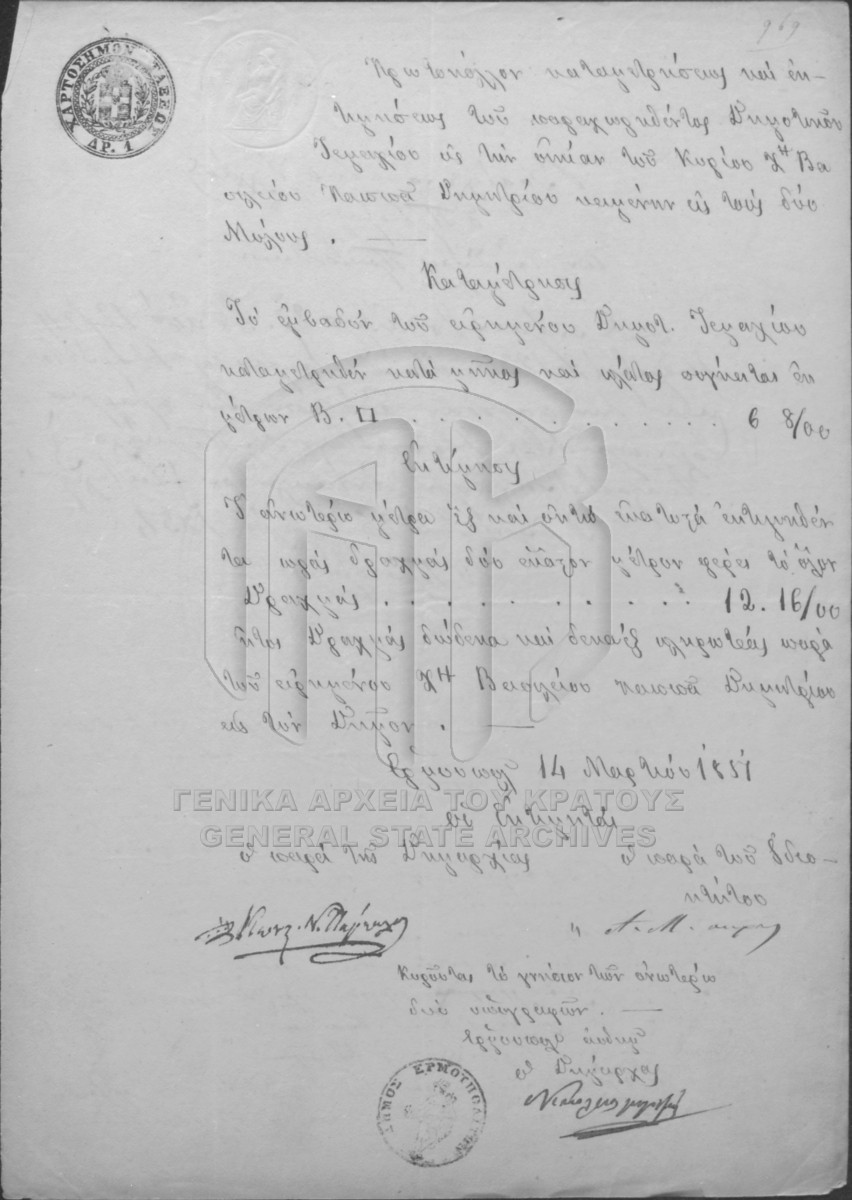 969
ΧΑΡΤΟΣΗΜΟΝ ΤΑΞΕΩΣ
ΔΡ. 1
Πρωτόκολλον καταμετρήσεως καί ἐκ-
τιμήσεως τοῦ παραχωρηθέντος Δημοτικοῦ
Τεμαχίου εἰς τὴν οἰκίαν τοῦ Κυρίου Χ^Η Βα
σιλείου Παππᾶ Δημητρίου κειμένην εἰς τοὺς δύο
Μύλους. —
Καταμέτρησις
Τὸ ἐμβαδόν τοῦ εἰρημένου Δημοτ. Τεμαχίου
καταμετρηθέν κατὰ μῆκος καί πλάτος σύγκειται ἐκ
μέτρων Β. Π . . . . . . . . . . . . . 6 8/00
Ἐκτίμησις
Τ' ἀνωτέρω μέτρα ἕξ καί ὀκτὼ ἑκατοστά ἐκτιμηθέν
τα πρὸς δραχμάς δύο ἕκαστον μέτρον φέρει τὸ ὅλον
Δραχμάς . . . . . . . . . . 12. 16/00
ἤτοι Δραχμάς δώδεκα καί δεκαέξ πληρωτέας παρὰ
τοῦ εἰρημένου Χ^Η Βασιλείου Παππᾶ Δημητρίου
εἰς τὸν Δῆμον. —
Ἑρμούπολ 14 Μαρτίου 1851
Οἱ Ἐκτιμηταί
ὁ παρά τῆς Δημαρχίας ὁ παρά τοῦ Ἰδιο-
κτήτου
Ν. Α. Μ.
Κυροῦται τὸ γνήσιον τῶν ἀνωτέρω
δύο ὑπογραφῶν. —
Ἑρμούπολ αὐθημ
ὁ Δήμαρχος
ΔΗΜΟΣ ΕΡΜΟΥΠΟΛΕΩΣ
ΓΕΝΙΚΑ ΑΡΧΕΙΑ ΤΟΥ ΚΡΑΤΟΥΣ
GENERAL STATE ARCHIVES